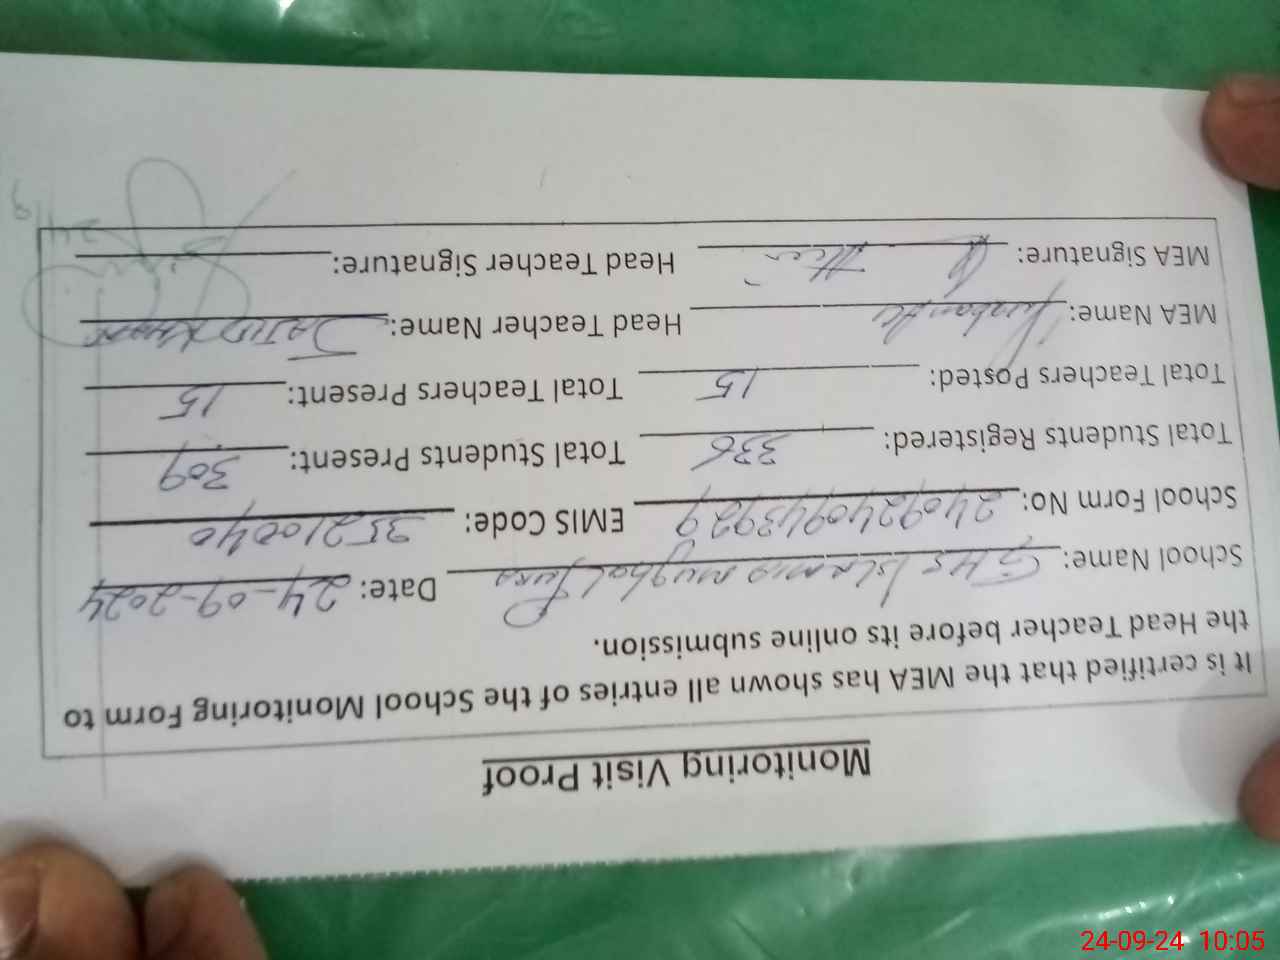 Monitoring Visit Proof
It is certified that the MEA has shown all entries of the School Monitoring Form to
the Head Teacher before its online submission.
School Name: GHS Islamia mughal Pura Date: 24-09-2024
School Form No: 2409240943929 EMIS Code: 35210040
Total Students Registered: 336 Total Students Present: 309
Total Teachers Posted: 15 Total Teachers Present: 15
MEA Name: Head Teacher Name:
MEA Signature: Head Teacher Signature:
24-09-24 10:05